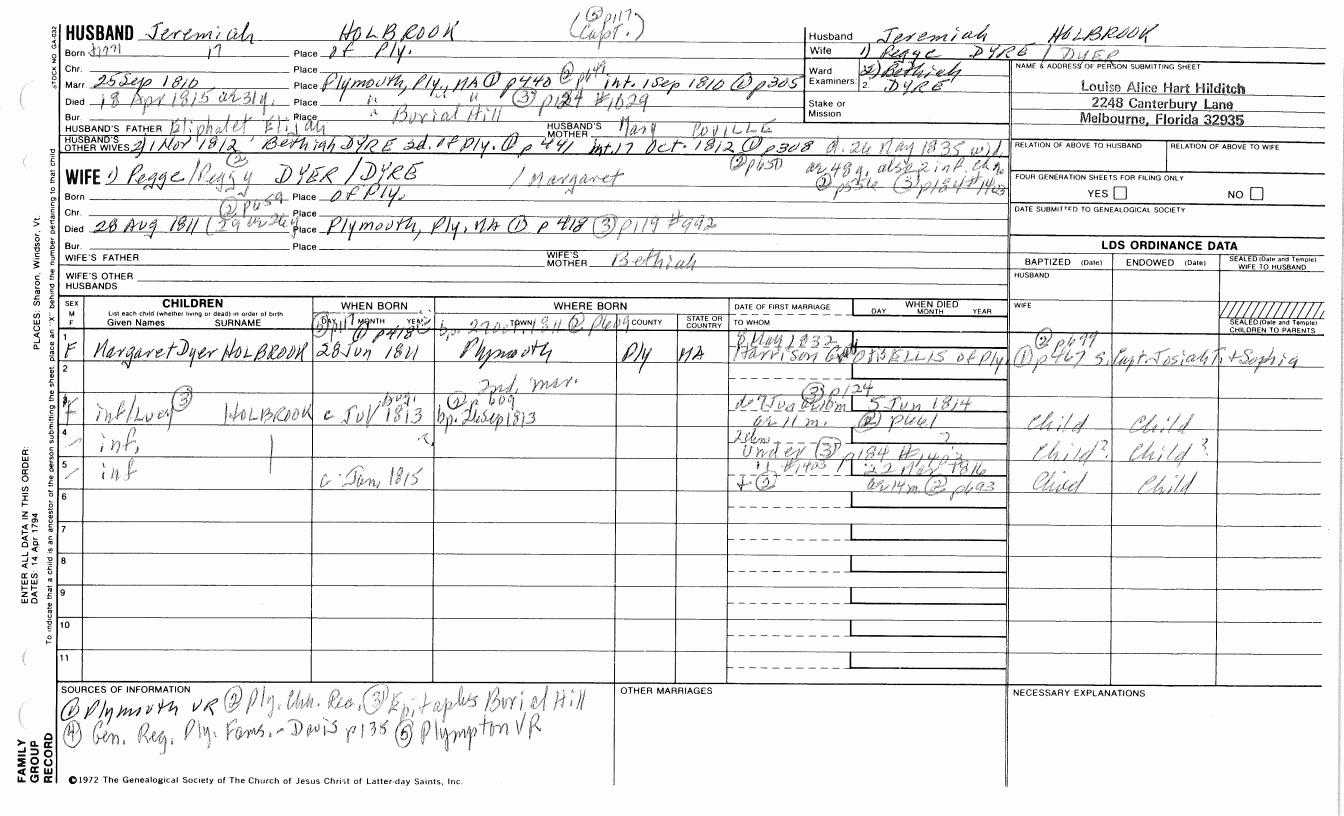 STOCK NO. GA-032
PLACES: Sharon, Windsor, Vt.
ENTER ALL DATA IN THIS ORDER:
DATES: 14 Apr 1794
To indicate that a child is an ancestor of the person submitting the sheet, place an "X" behind the number pertaining to that child
FAMILY GROUP RECORD
HUSBAND Jeremiah HOLBROOK (⑤ p117 Capt.)
Born 17 Place of Ply.
Chr. Place
Marr 25 Sep 1810 Place Plymouth, Ply., MA ① p440 ② int. 1 Sep 1810 ① p305
Died 18 Apr 1815 ae 31y. Place " " ③ p124 #1029
Bur. Place Burial Hill
HUSBAND'S FATHER Eliphalet Elijah HUSBAND'S MOTHER Mary
HUSBAND'S OTHER WIVES 2) 1 Nov 1812 Bethiah DYRE 2d. of Ply. ① p 441 int. 17 Oct. 1812 ① p308 d. 26 May 1835 wid.
② p680 ae 48y, also 2 inf. chn.
② p556 ③ p184 #1403
WIFE 1) Pegge/Peggy ② DYER/DYRE / Margaret
Born Place of Ply.
Chr. ② p659
Died 28 Aug 1811 (29 ae 26y Place Plymouth, Ply, MA ① p 418 ③ p119 #992
Bur. Place
WIFE'S FATHER WIFE'S MOTHER Bethiah
WIFE'S OTHER HUSBANDS
Husband Jeremiah HOLBROOK
Wife 1) Pegge DYRE / DYER
Ward 2) Bethiah
Examiners: 2 DYRE
Stake or Mission
NAME & ADDRESS OF PERSON SUBMITTING SHEET
Louise Alice Hart Hilditch
2248 Canterbury Lane
Melbourne, Florida 32935
RELATION OF ABOVE TO HUSBAND RELATION OF ABOVE TO WIFE
FOUR GENERATION SHEETS FOR FILING ONLY
YES NO
DATE SUBMITTED TO GENEALOGICAL SOCIETY
LDS ORDINANCE DATA
BAPTIZED (Date) ENDOWED (Date) SEALED (Date and Temple) WIFE TO HUSBAND
HUSBAND
WIFE
SEALED (Date and Temple) CHILDREN TO PARENTS
SEX M F CHILDREN WHEN BORN WHERE BORN DATE OF FIRST MARRIAGE WHEN DIED
List each child (whether living or dead) in order of birth
Given Names SURNAME DAY MONTH YEAR TOWN COUNTY STATE OR COUNTRY TO WHOM DAY MONTH YEAR
① p418 1811 ②
1 F Margaret Dyer HOLBROOK 28 Jun 1811 Plymouth Ply MA 8 May 1832 Harrison Gray OTIS ELLIS of Ply
② p699
① p467 s. Capt. Josiah T. + Sophia
2
2nd. mar.
3 F inf/Lucy ③ HOLBROOK c Jul 1813 ② p 609 bp. 26 Sep 1813 ③ p124 5 Jun 1814
ae 11 m. ② p661 Child Child
4 inf. under ③ p184 #1403 Child? Child?
5 inf c. Jan. 1815 22 Mar 1816
+ ② ae 14 m ② p693 Child Child
6
7
8
9
10
11
SOURCES OF INFORMATION OTHER MARRIAGES NECESSARY EXPLANATIONS
① Plymouth VR ② Ply. Chh. Rec. ③ Epitaphs Burial Hill
④ Gen. Reg. Ply. Fams. - Davis p135 ⑤ Plympton VR
©1972 The Genealogical Society of The Church of Jesus Christ of Latter-day Saints, Inc.